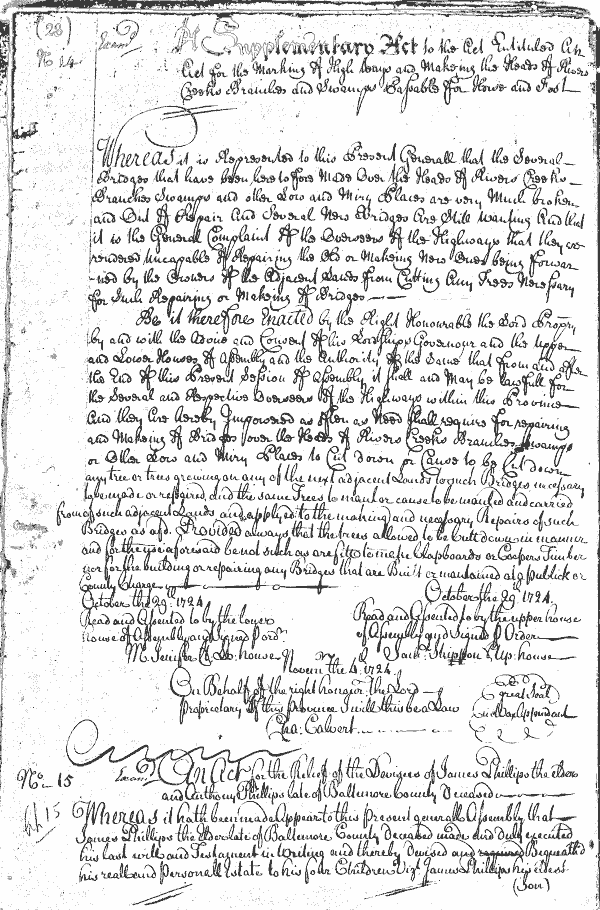 (28)
No 14
Exam.d A Supplementary Act to the Act Entituled An
Act for the Marking of High ways and Making the Heads of Rivers
Creeks Branches and Swamps Passable for Horse and Foot
Whereas it is Represented to this Present Generall that the Several
Bridges that have been heretofore Made Over the Heads of Rivers Creeks
Branches Swamps and other Low and Miry Places are very Much broken
and Out of Repair And Several New Bridges Are Still wanting And that
it is the General Complaint of the Overseers of the Highways that they are
rendered Uncapable of Repairing the Old or Makeing New Ones being forwar
-ned by the Owners of the Adjacent Lands from Cutting Any Trees Necessary
for Such Repairing or Makeing of Bridges
Be it therefore Enacted by the Right Honourable the Lord Propry
by and with the Advice and Consent of his Lordships Governour and the upper
and Lower Houses of Assembly and the Authority of the Same that from and after
the End of this Present Session of Assembly it shall and May be lawfull for
the Several and Respective Overseers of the Highways within this Province
And they Are hereby Impowered as often as Need shall require for repairing
and Makeing of Bridges over the Heads of Rivers Creeks Branches Swamps
or Other Low and Miry Places to Cut down or Cause to be Cut down
any tree or trees growing on any of the next adjacent Lands to such Bridges necessary
to be made or repaired, and the same Trees to maul or cause to be mauled and carried
from of such adjacent Lands and applyed to the making and necessary Repairs of such
Bridges as afd. Provided always that the trees allowed to be cutt down in manner
and for the use aforesaid be not such as are fitt to make Clapboards or Coopers Timber
nor for the building or repairing any Bridges that are Built or maintained at a publick or
County Charge
October the 29th 1724
Read and Assented to by the lower
house of Assembly and Signed P ordr
M. Jenifer Cl. Lo: house
October the 29th 1724
Read and Assented to by the upper house
of Assembly and Signed P Order
Saml. Skippon Cl Up: house
Novem.r the 4th 1724
On Behalf of the right honour.ble the Lord
proprietary of this province I will this be a Law
Cha: Calvert
great Seal
No 15
Exam.d An Act for the Relief of the Devisees of James Phillips the elder
and Anthony Phillips late of Baltemore County deceased
15
Whereas it hath been made Appear to this present generall Assembly that
James Phillips the elder late of Baltemore County deceased made and duly executed
his last will and Testament in Writing and thereby devised and Bequeath'd
his reall and personall Estate to his four Children Viz. James Phillips his eldest
(Son)